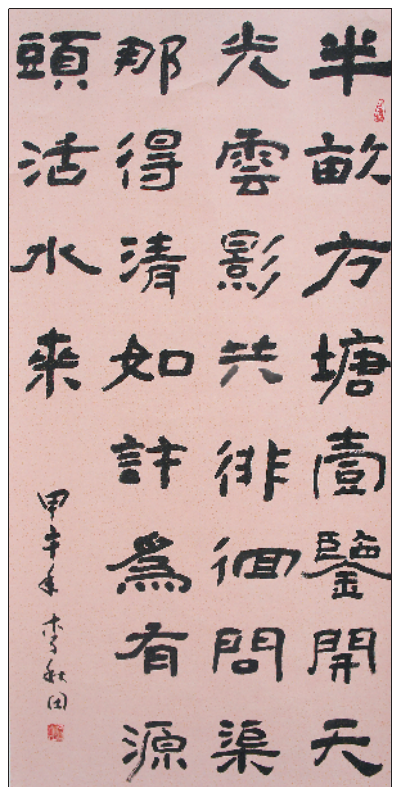 半畝方塘壹鑒開天
光雲影共徘徊問渠
那得清如許爲有源
頭活水來
甲午年李秋田